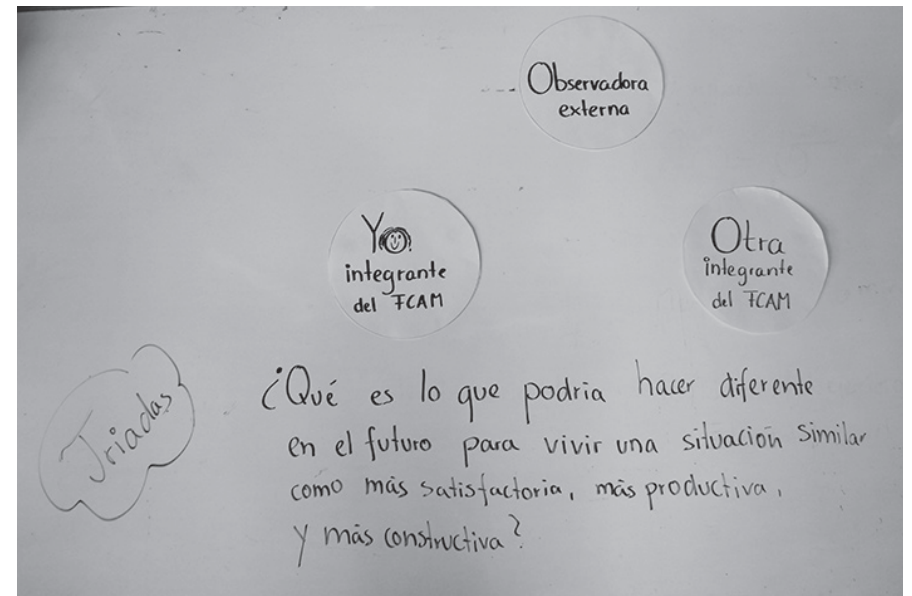 Observadora
externa
Yo
integrante
del FCAM
Otra
integrante
del FCAM
Triadas
¿Qué es lo que podria hacer diferente
en el futuro para vivir una situación similar
como más satisfactoria, más productiva,
y más constructiva?